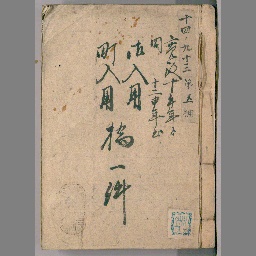 十四ノ九十三 第五冊
寛政十午年ゟ
同 十二申年迄
御入用
町入用 橋一件